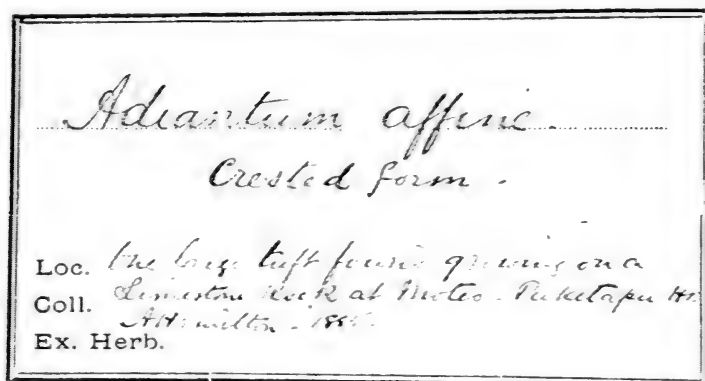 Adiantum affine.
Crested form.
Loc. One large tuft found growing on a
Coll. Limestone Rock at Moteo. Puketapu
A Hamilton.
Ex. Herb.